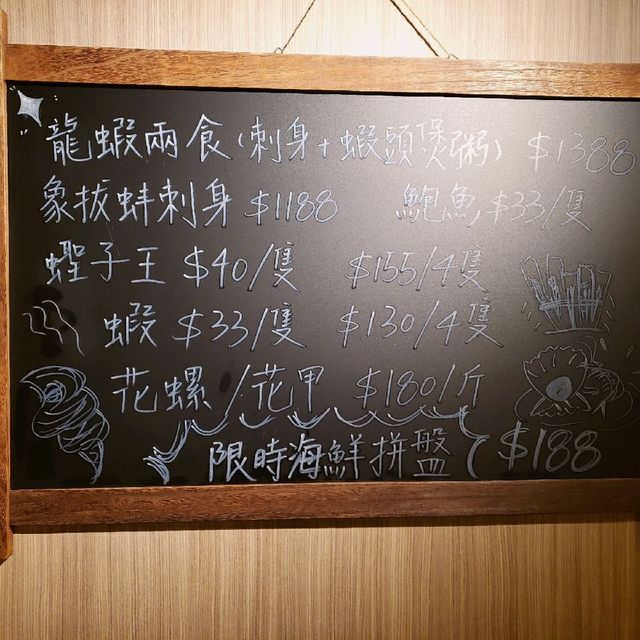 龍蝦兩食(刺身+蝦頭煲粥) $1388
象拔蚌刺身 $1188 鮑魚 $33/隻
蟶子王 $40/隻 $155/4隻
蝦 $33/隻 $130/4隻
花螺/花甲 $180/斤
限時海鮮拼盤 $188